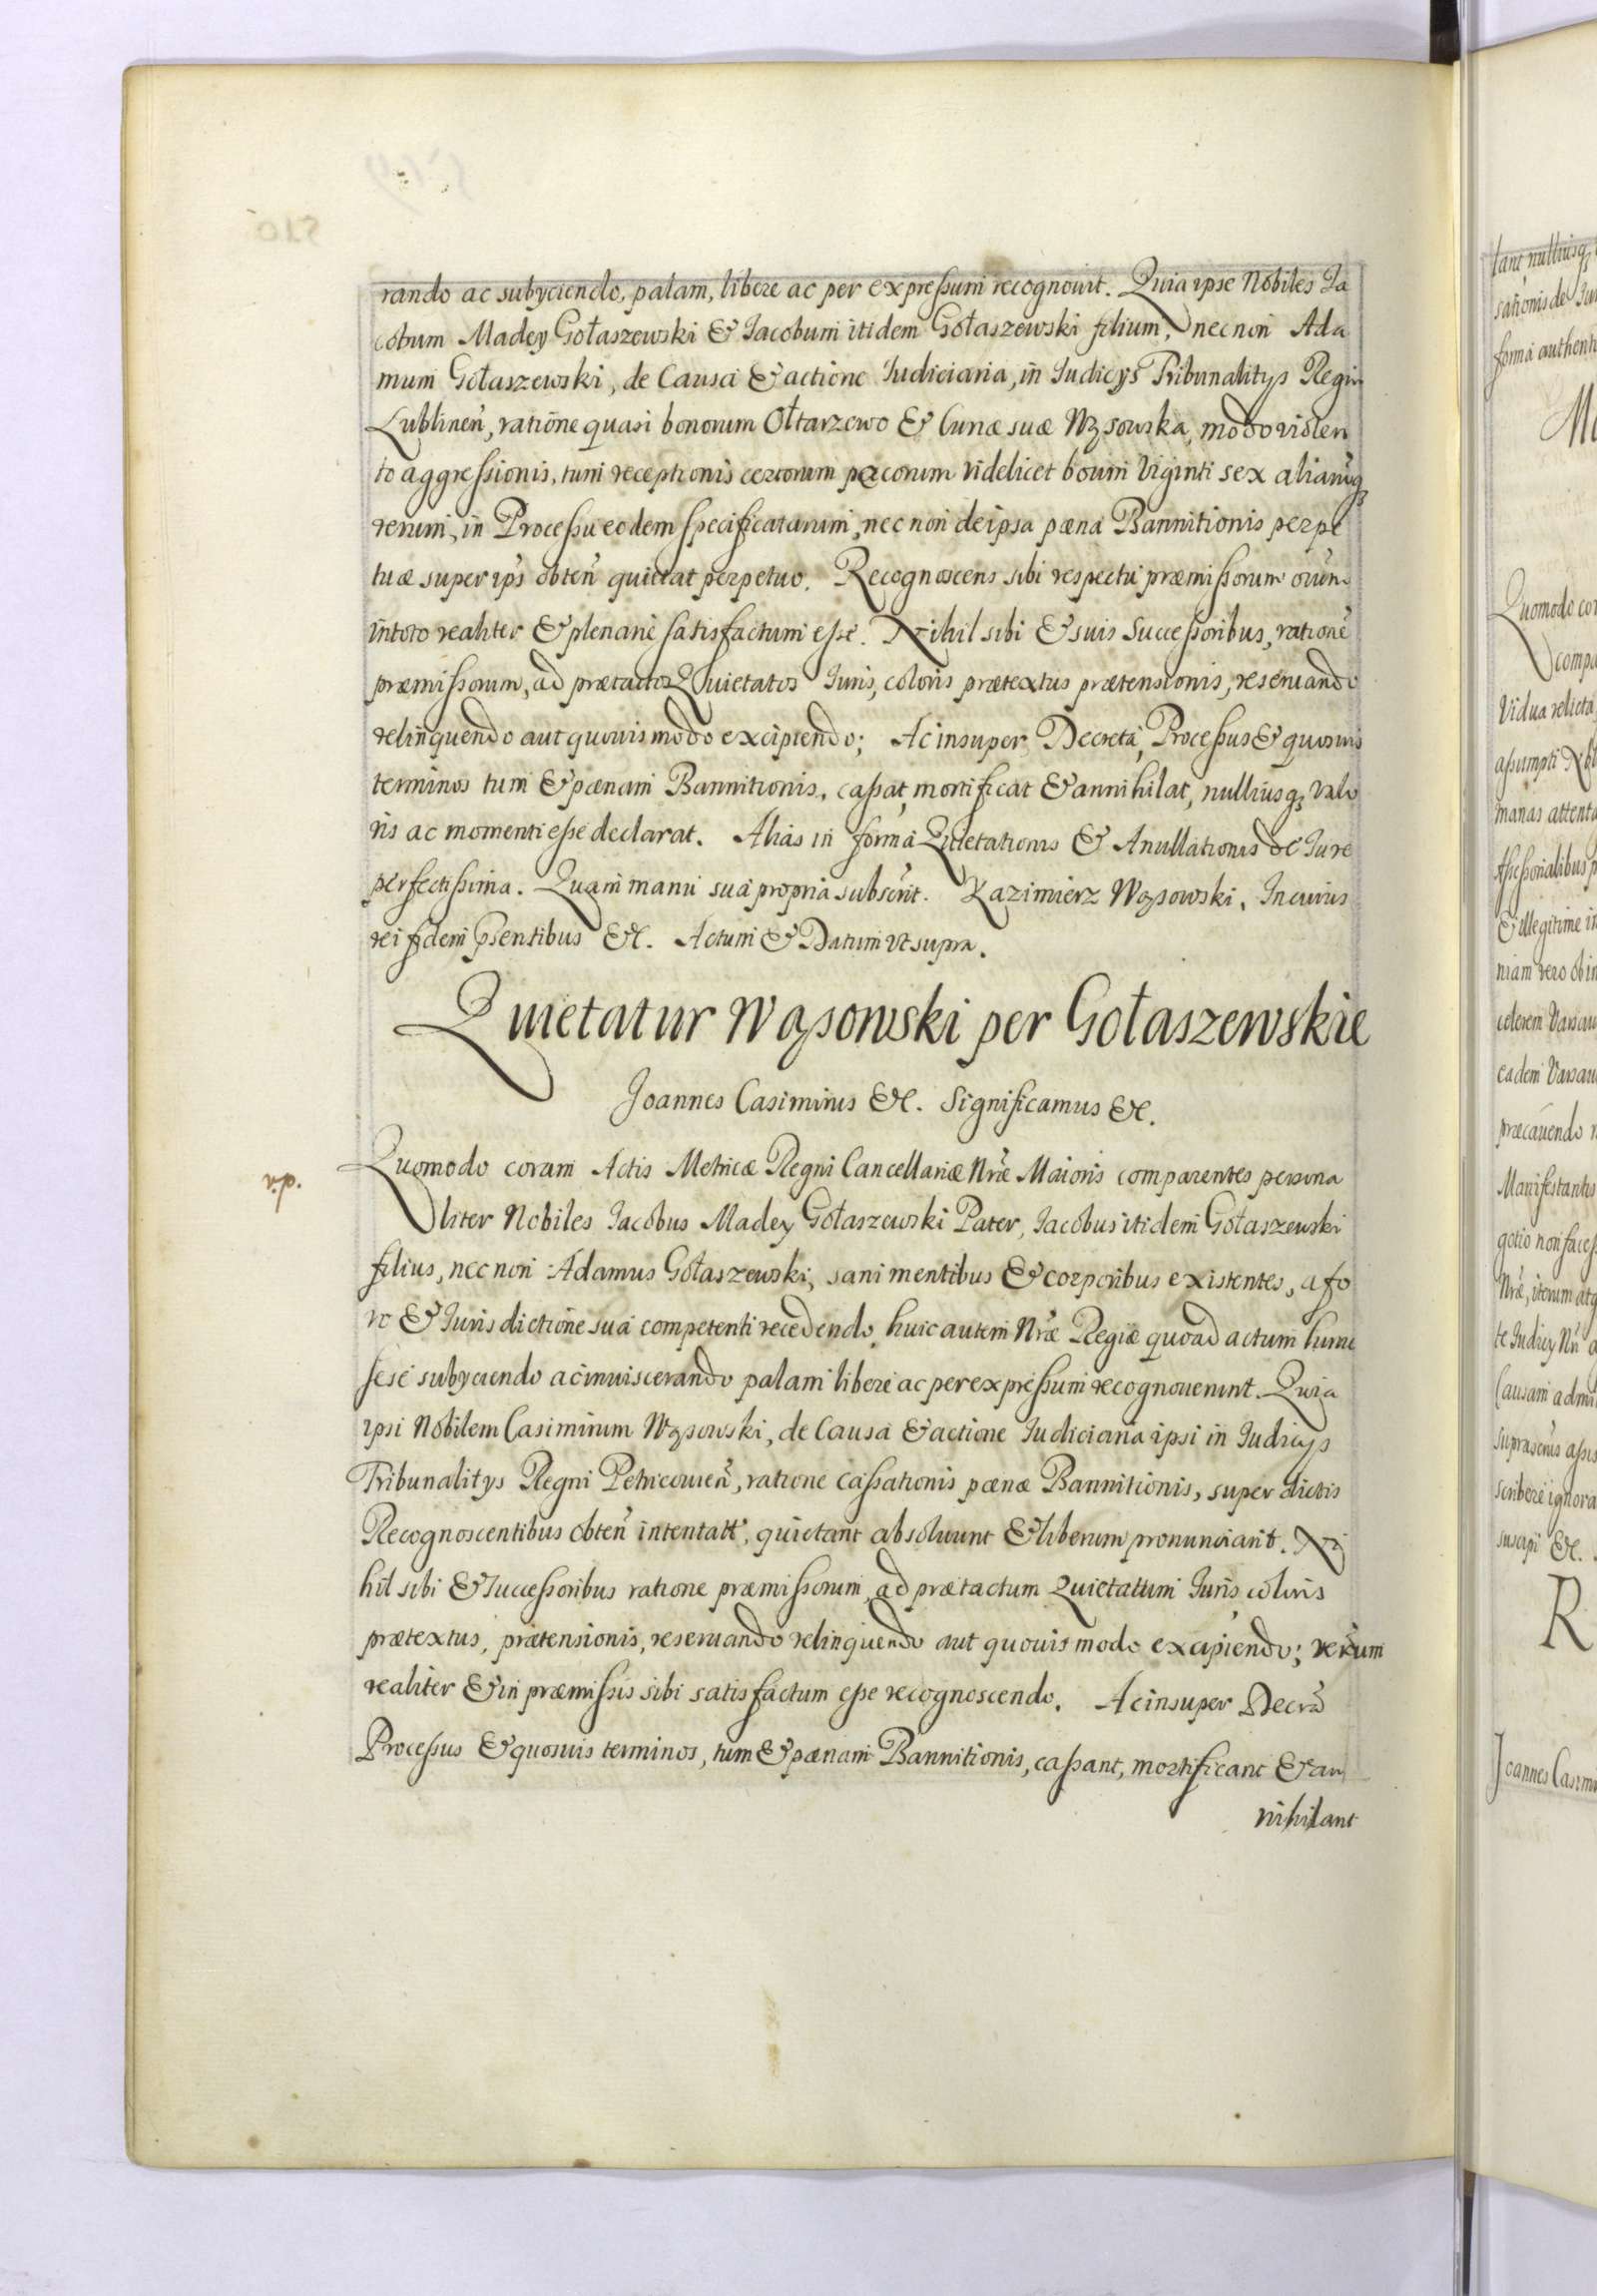 rando ac subyciendo, palam, libere ac per expressum recognouit. Quia ipse Nobiles Ia
cobum Madey Gołaszewski & Iacobum itidem Gołaszewski filium, nec non Ada
mum Gołaszewski, de Causa & actione Iudiciaria, in Iudicys Tribunalitys Regni
Lublineñ, ratione quasi bonorum Ołtarzewo & Curiæ suæ Wąsowska, modo violen
to aggressionis, tum receptionis certorum pecorum videlicet boum Viginti sex aliarũq
rerum, in Processu eodem specificatarum, nec non de ipsa pæna Bannitionis perpe
tuæ super ip̃s obteñ quietat perpetuo. Recognoscens sibi respectu præmissorum oĩum
in toto realiter & plenarie satisfactum esse. Nihil sibi & suis Successoribus, ratione
præmissorum, ad prætactos Quietatos Iuris, coloris prætextus prætensionis, reseruando
relinquendo aut quouis modo excipiendo; Ac insuper Decreta, Processus & quosuis
terminos tum & pœnam Bannitionis, cassat, mortificat & annihilat, nulliusq valo
ris ac momenti esse declarat. Alias in forma Quietationis & Anullationis de Iure
perfectissima. Quam manu sua propria subscrit. Kazimierz Wąsowski. In cuius
rei fidem p̃sentibus &c. Actum & Datum vt supra.
Quietatur Wąsowski per Gołaszewskie
Joannes Casimirus &c. Significamus &c.
Quomodo coram Actis Metricæ Regni Cancellariæ Nr̃æ Maioris comparentes persona
v.p.
liter Nobiles Iacobus Madey Gołaszewski Pater, Iacobus itidem Gołaszewski
filius, nec non Adamus Gołaszewski, sani mentibus & corporibus existentes, a fo
ro & Iurisdictione sua competenti recedendo, huic autem Nr̃æ Regiæ quoad actum hunc
sese subyciendo ac inuiscerando palam libere ac per expressum recognouerunt. Quia
ipsi Nobilem Casimirum Wąsowski, de Causa & actione Iudiciaria ipsi in Iudicys
Tribunalitys Regni Petricouieñ, ratione cassationis pænæ Bannitionis, super dictis
Recognoscentibus obteñ intentatt, quietant absoluunt & liberum pronunciant. Ni
hil sibi & Successoribus ratione præmissorum, ad prætactum Quietatum Iuris coloris
prætextus, prætensionis, reseruando relinquendo aut quouis modo excipiendo; verum
realiter & in præmissis sibi satisfactum esse recognoscendo. Ac insuper Decr̃a
Processus & quosuis terminos, tum & pænam Bannitionis, cassant, mortificant & an
nihilant